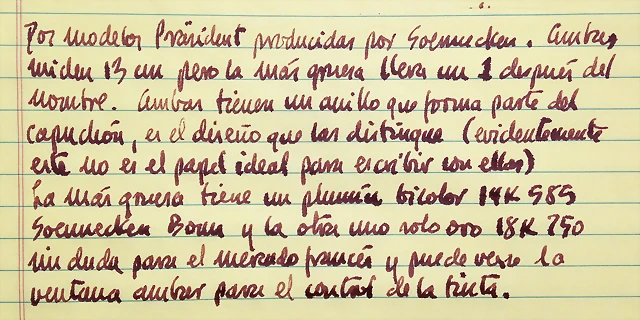 Dos modelos Präsident producidas por Soennecken. Ambas
miden 13 cm pero la más gruesa lleva un 1 después del
nombre. Ambas tienen un anillo que forma parte del
capuchón, es el diseño que las distingue (evidentemente
este no es el papel ideal para escribir con ellas)
La más gruesa tiene un plumín bicolor 14K 585
Soennecken Bonn y la otra uno solo oro 18K 750
sin duda para el mercado francés y puede verse la
ventana ambar para el control de la tinta.